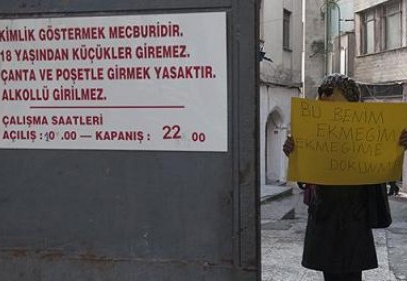 KİMLİK GÖSTERMEK MECBURİDİR.
18 YAŞINDAN KÜÇÜKLER GİREMEZ.
ÇANTA VE POŞETLE GİRMEK YASAKTIR.
ALKOLLÜ GİRİLMEZ.
ÇALIŞMA SAATLERİ
AÇILIŞ: 10.00 — KAPANIŞ: 22 00
BU BENİM
EKMEĞİM
EKMEĞİME
DOKUNMA